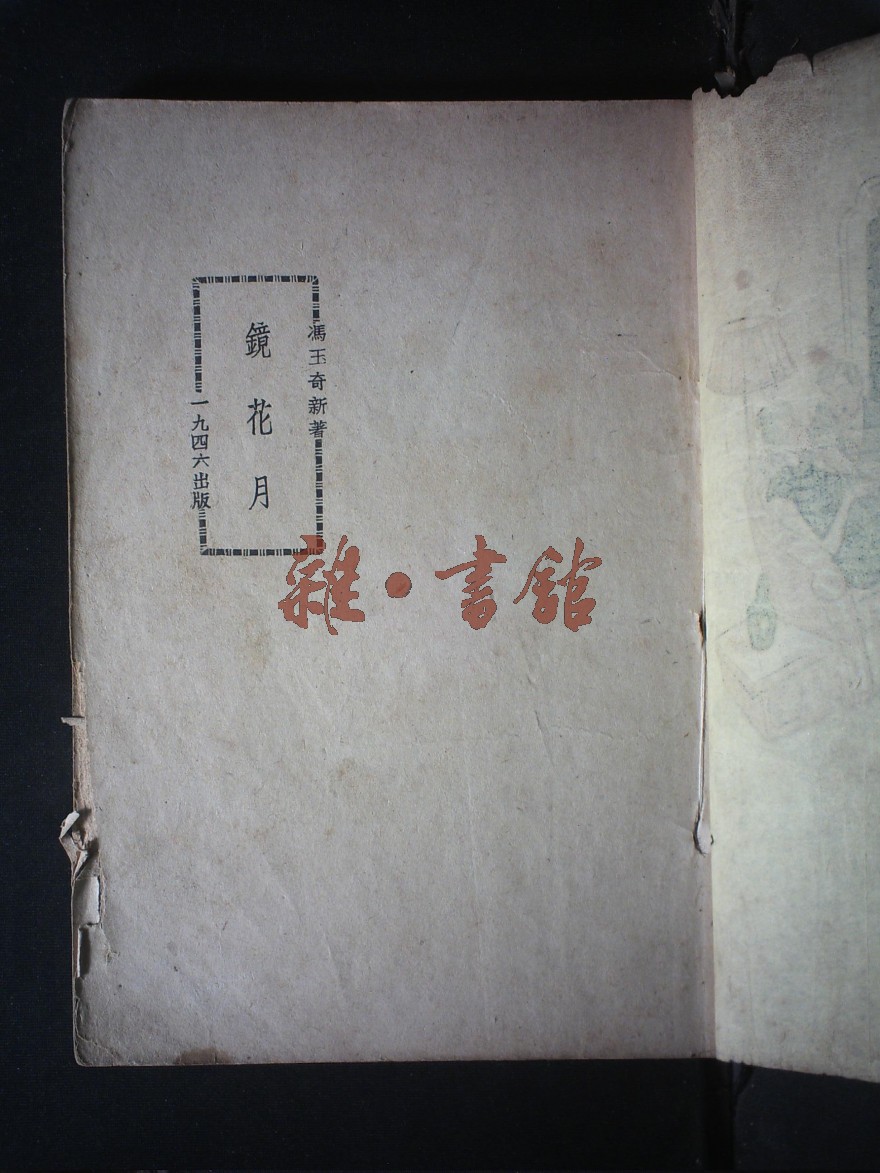 馮玉奇新著
鏡花月
一九四六出版
雜·書館